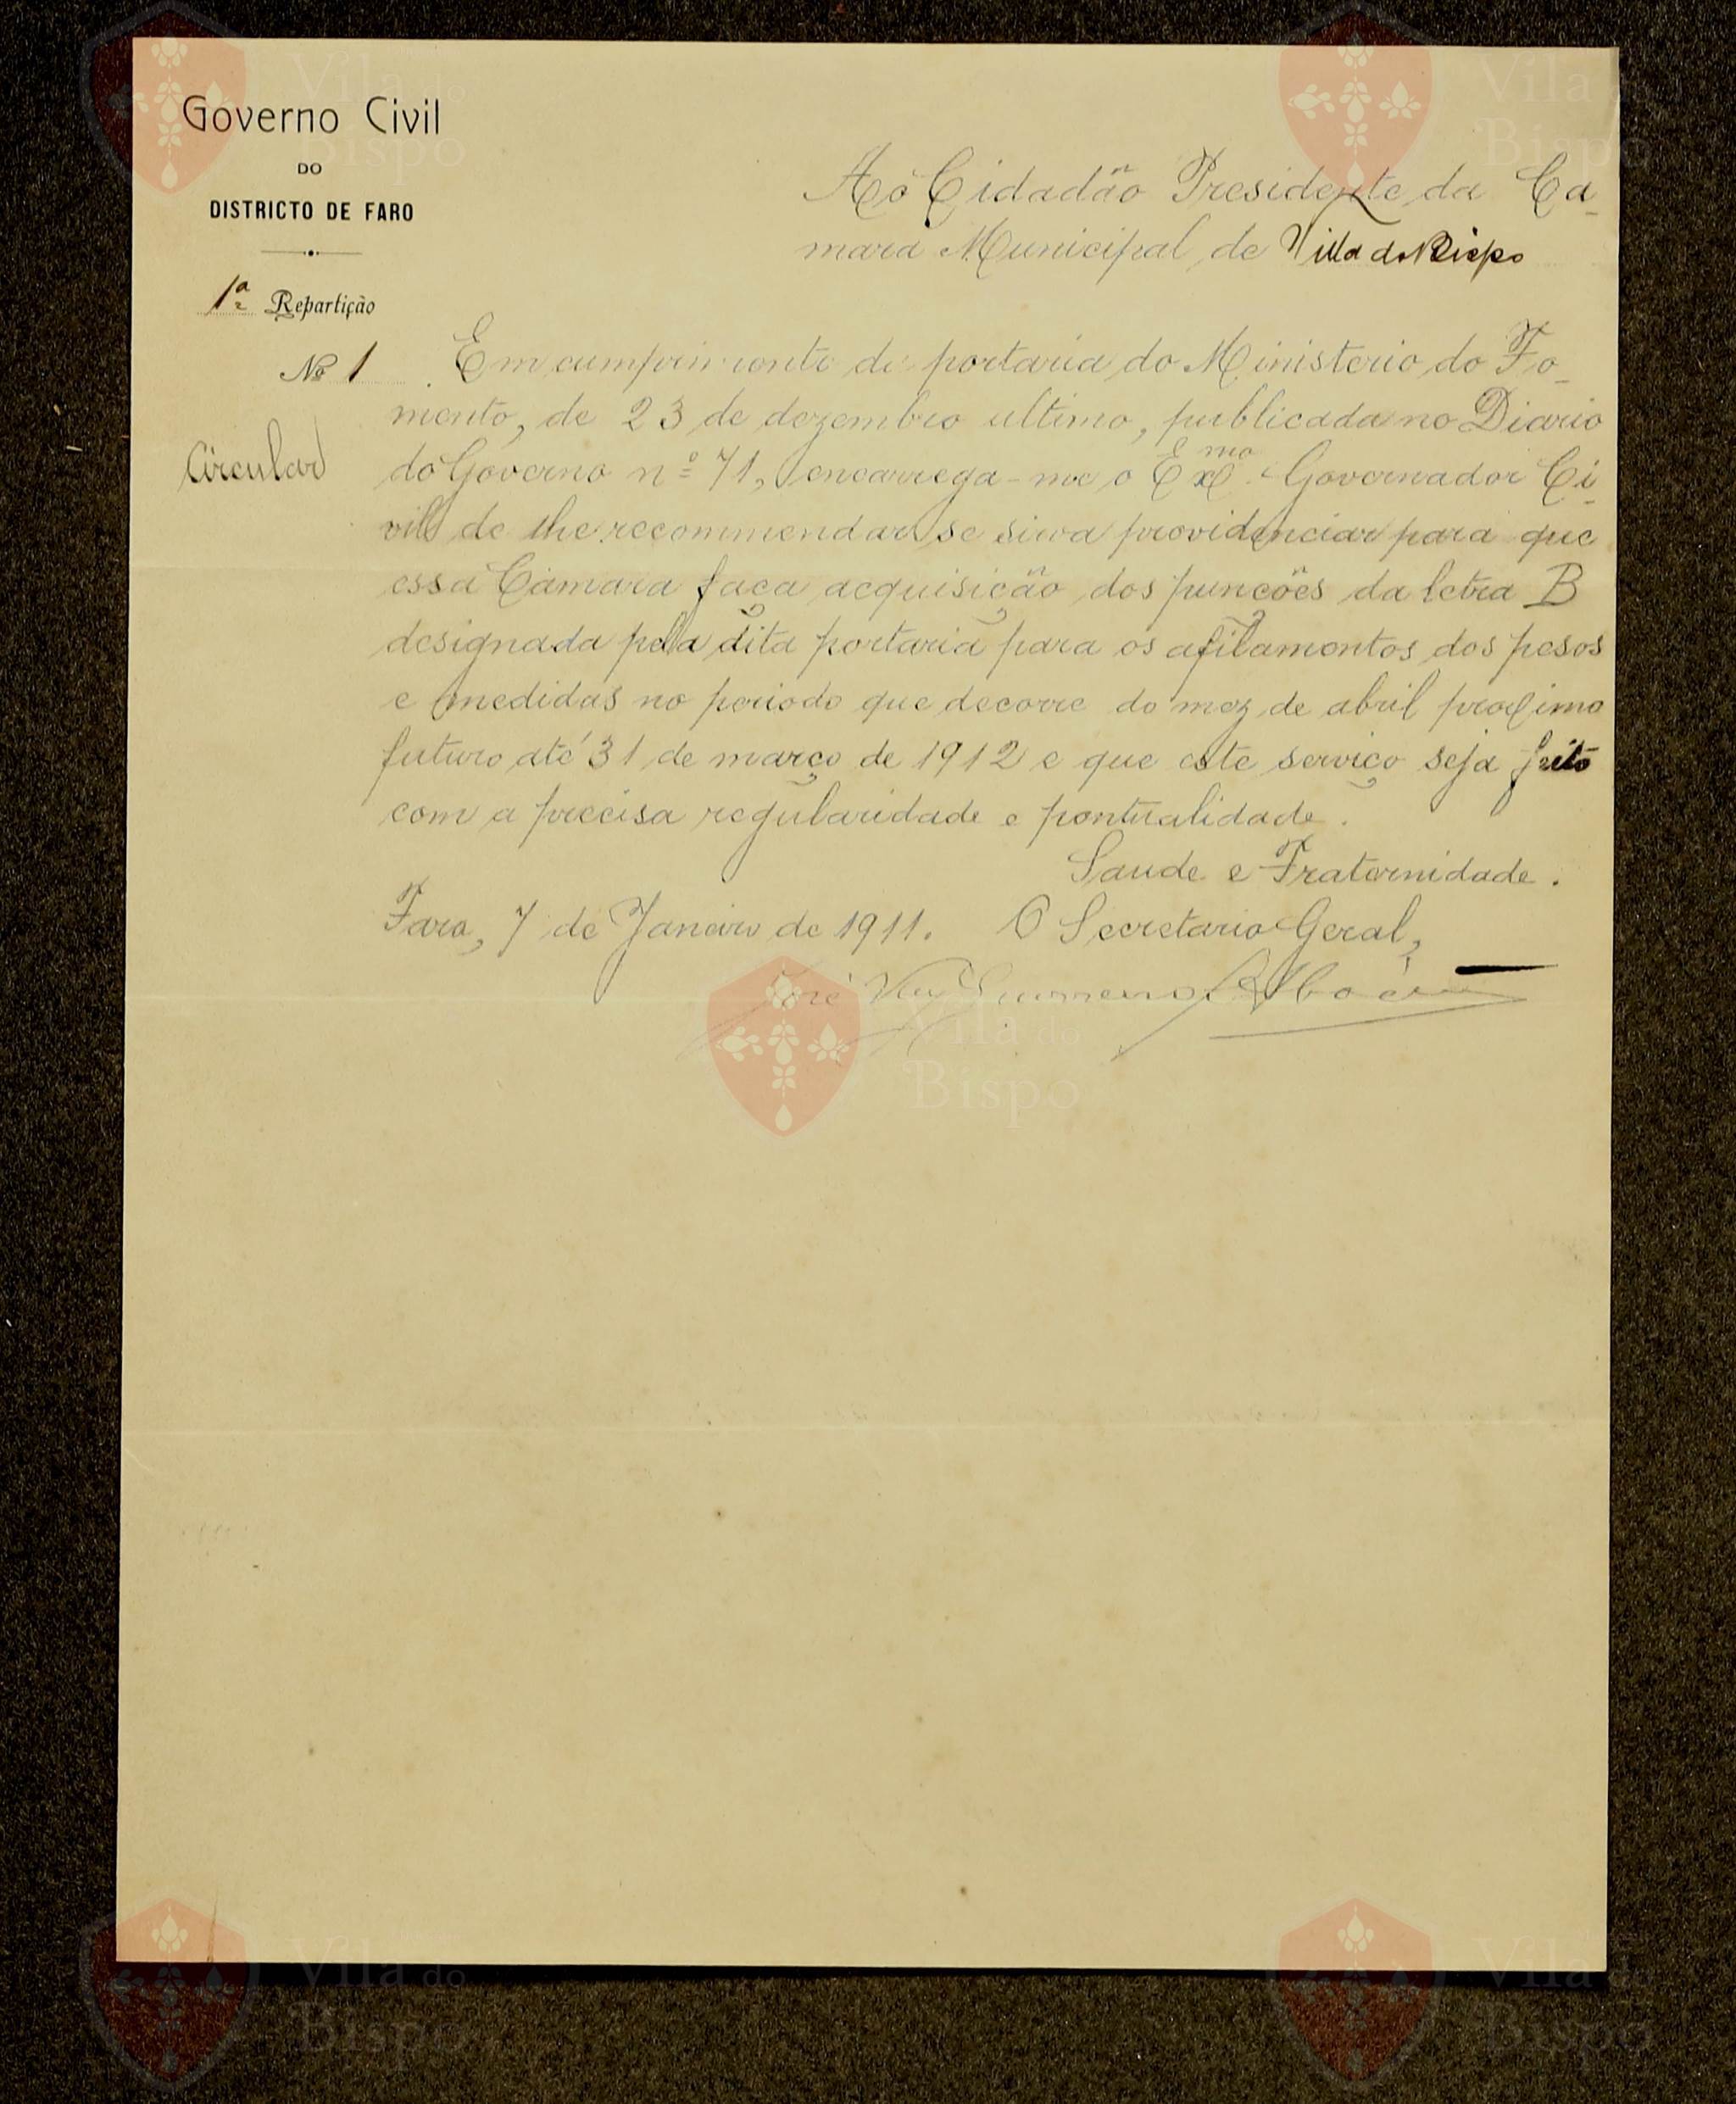 Governo Civil
DO
DISTRICTO DE FARO
1ª Repartição
Nº 1
Circular
Ao Cidadão Presidente da Ca-
mara Municipal de Villa do Bispo
Em cumprimento de portaria do Ministerio do Fo-
mento, de 23 de dezembro ultimo, publicada no Diario
do Governo nº 71, encarrega-me o Exmo Governador Ci-
vil de lhe recommendar se sirva providenciar para que
essa Camara faça acquisição dos punções da letra B
designada pela dita portaria para os afilamentos dos pesos
e medidas no periodo que decorre do mez de abril proximo
futuro até 31 de março de 1912 e que este serviço seja feito
com a precisa regularidade e pontualidade.
Saude e Fraternidade.
Faro, 7 de Janeiro de 1911. O Secretario Geral,
José
Vila do
Bispo
Vila do
Bispo
Vila do
Bispo
Vila do
Bispo
Vila do
Bispo